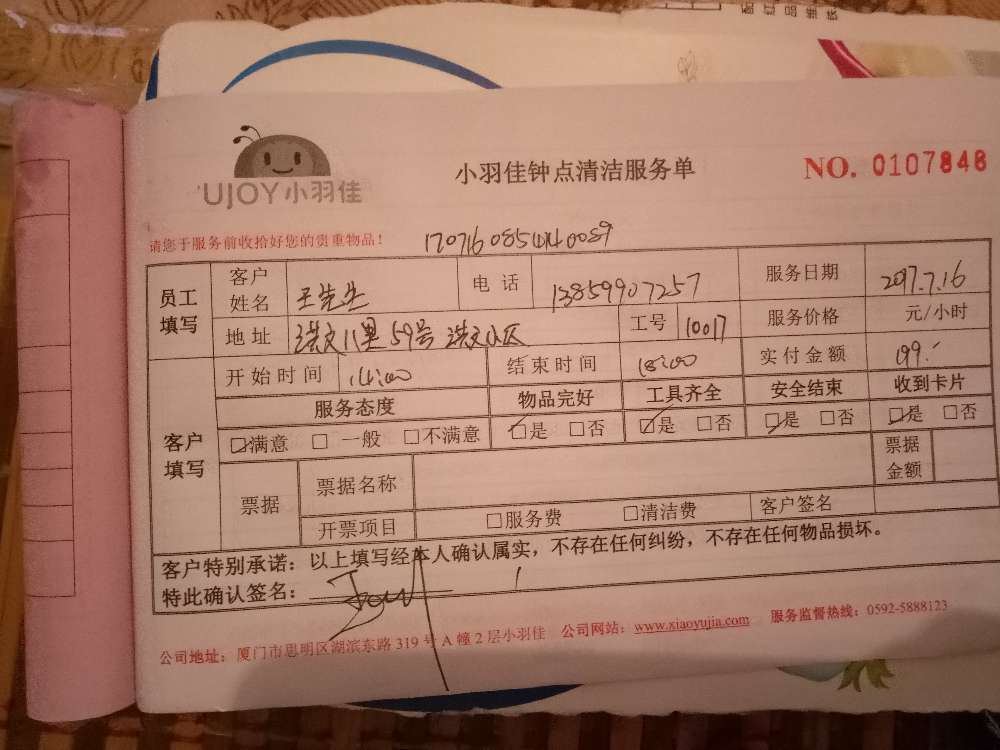 UJOY小羽佳
小羽佳钟点清洁服务单
NO. 0107848
请您于服务前收拾好您的贵重物品！
员工填写 客户姓名 王先生 电话 13859907257 服务日期 2017.7.16
地址 洪文八里59号 洪文小区 工号 10017 服务价格 元/小时
客户填写 开始时间 14:00 结束时间 18:00 实付金额 199.-
服务态度 物品完好 工具齐全 安全结束 收到卡片
☑满意 □一般 □不满意 ☑是 □否 ☑是 □否 ☑是 □否 ☑是 □否
票据 票据名称 票据金额
开票项目 □服务费 □清洁费 客户签名
客户特别承诺：以上填写经本人确认属实，不存在任何纠纷，不存在任何物品损坏。
特此确认签名：
公司地址：厦门市思明区湖滨东路319号A幢2层小羽佳 公司网站：www.xiaoyujia.com 服务监督热线：0592-5888123